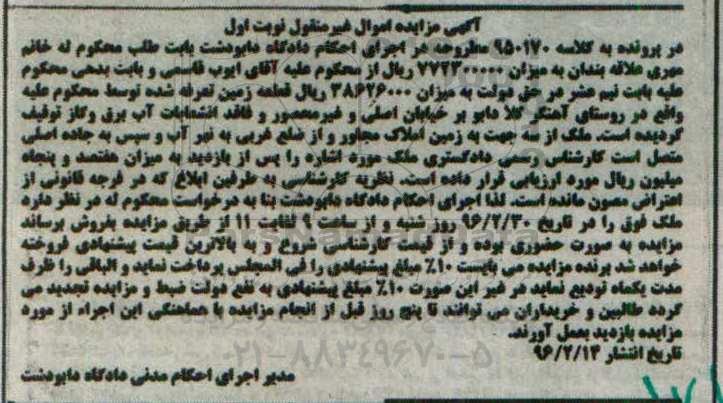 آگهی مزایده اموال غیرمنقول نوبت اول
در پرونده به کلاسه ۹۵۰۱۷۰ مطروحه در اجرای احکام دادگاه دابودشت بابت طلب محکوم له خانم
مهری علاقه بندان به میزان ۷۷۲۳۰۰۰۰۰ ریال از محکوم علیه آقای ایوب قاسمی و بابت بدهی محکوم
علیه بابت نیم عشر در حق دولت به میزان ۳۸۶۲۶۰۰۰ ریال قطعه زمین تعرفه شده توسط محکوم علیه
واقع در روستای آهنگر کلا دابو بر خیابان اصلی و غیرمحصور و فاقد انشعابات آب برق وگاز توقیف
گردیده است. ملک از سه جهت به زمین املاک مجاور و از ضلع غربی به نهر آب و سپس به جاده اصلی
متصل است کارشناس رسمی دادگستری ملک مورد اشاره را پس از بازدید به میزان هفتصد و پنجاه
میلیون ریال مورد ارزیابی قرار داده است. نظریه کارشناسی به طرفین ابلاغ که در فرجه قانونی از
اعتراض مصون مانده است. لذا اجرای احکام دادگاه دابودشت بنا به درخواست محکوم له در نظر دارد
ملک فوق را در تاریخ ۹۶/۲/۳۰ روز شنبه و از ساعت ۹ لغایت ۱۱ از طریق مزایده بفروش برساند
مزایده به صورت حضوری بوده و از قیمت کارشناسی شروع و به بالاترین قیمت پیشنهادی فروخته
خواهد شد برنده مزایده می بایست ۱۰٪ مبلغ پیشنهادی را فی المجلس پرداخت نماید و الباقی را ظرف
مدت یکماه تودیع نماید در غیر این صورت ۱۰٪ مبلغ پیشنهادی به نفع دولت ضبط و مزایده تجدید می
گردد طالبین و خریداران می توانند تا پنج روز قبل از انجام مزایده با هماهنگی این اجراء از مورد
مزایده بازدید بعمل آورند.
تاریخ انتشار ۹۶/۲/۱۴
مدیر اجرای احکام مدنی دادگاه دابودشت
۰۲۱-۸۸۳۴۹۶۷۰-۵